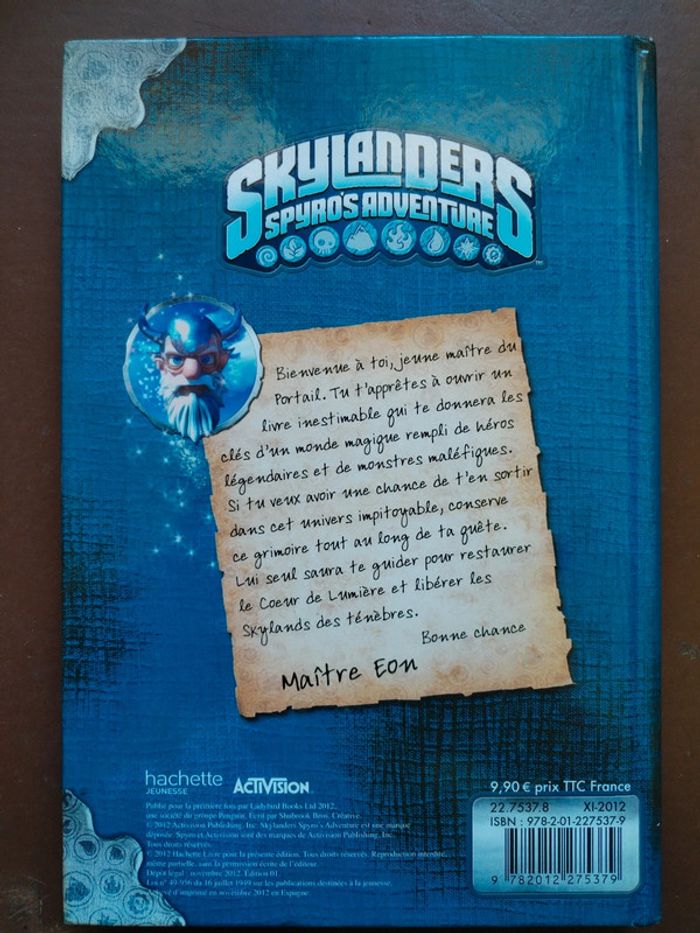 SKYLANDERS
SPYRO'S ADVENTURE
Bienvenue à toi, jeune maître du
Portail. Tu t'apprêtes à ouvrir un
livre inestimable qui te donnera les
clés d'un monde magique rempli de héros
légendaires et de monstres maléfiques.
Si tu veux avoir une chance de t'en sortir
dans cet univers impitoyable, conserve
ce grimoire tout au long de ta quête.
Lui seul saura te guider pour restaurer
le Coeur de Lumière et libérer les
Skylands des ténèbres.
Bonne chance
Maître Eon
hachette
JEUNESSE
ACTIVISION
9,90 € prix TTC France
22.7537.8 XI-2012
ISBN : 978-2-01-227537-9
9 782012 275379
Publié pour la première fois par Ladybird Books Ltd 2012,
une société du groupe Penguin. Écrit par Shubrook Bros. Creative.
© 2012 Activision Publishing, Inc. Skylanders Spyro's Adventure est une marque
déposée. Spyro et Activision sont des marques de Activision Publishing, Inc.
Tous droits réservés.
© 2012 Hachette Livre pour la présente édition. Tous droits réservés. Reproduction interdite,
même partielle, sans la permission écrite de l'éditeur.
Dépôt légal : novembre 2012. Édition 01.
Loi n° 49-956 du 16 juillet 1949 sur les publications destinées à la jeunesse.
d'imprimé en novembre 2012 en Espagne.